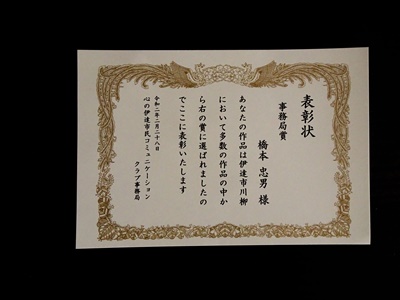 表彰状
事務局賞
橋本忠男様
あなたの作品は伊達市川柳
において多数の作品の中か
ら右の賞に選ばれましたの
でここに表彰いたします
令和二年二月二十八日
心の伊達市民コミュニケーション
クラブ事務局